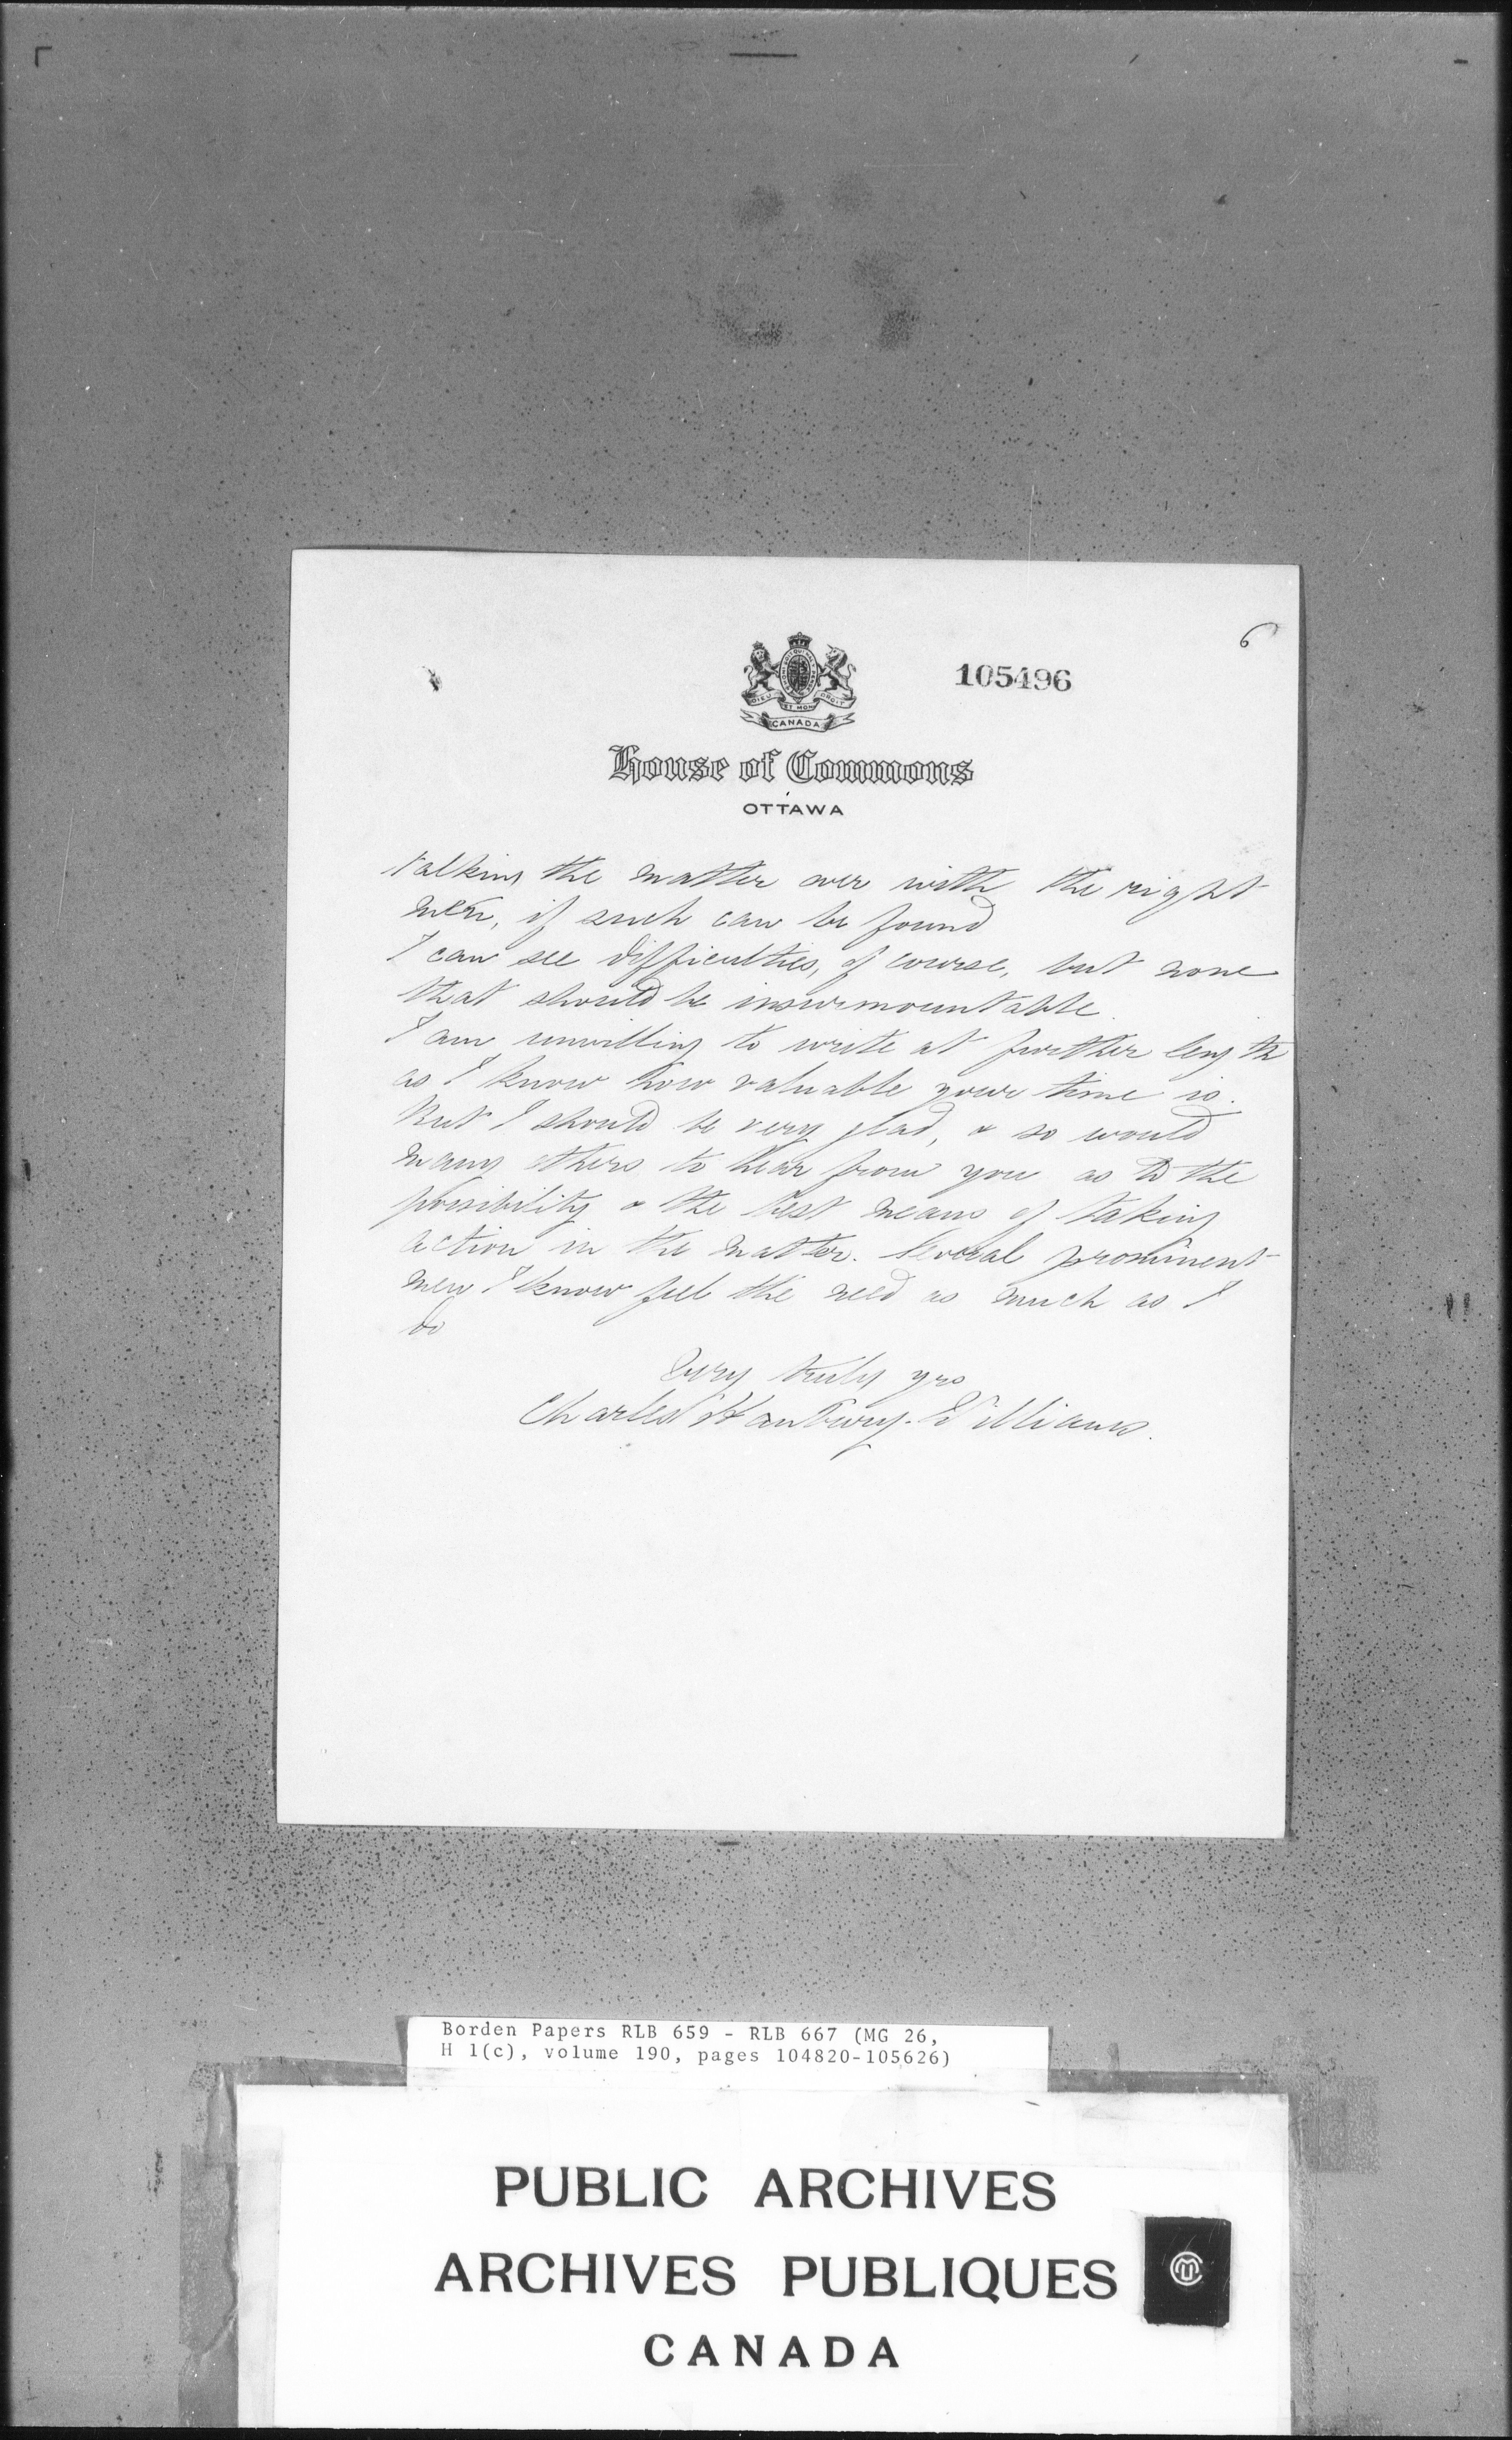 6
105496
DIEU ET MON DROIT
CANADA
House of Commons
OTTAWA
talking the matter over with the right
men, if such can be found
I can see difficulties, of course, but none
that should be insurmountable.
I am unwilling to write at further length
as I know how valuable your time is.
But I should be very glad, & so would
many others to hear from you as to the
possibility & the best means of taking
action in the matter. Several prominent
men I know feel the need as much as I
do
Very truly yrs
Charles Hanbury-Williams.
Borden Papers RLB 659 - RLB 667 (MG 26,
H 1(c), volume 190, pages 104820-105626)
PUBLIC ARCHIVES
ARCHIVES PUBLIQUES
CANADA